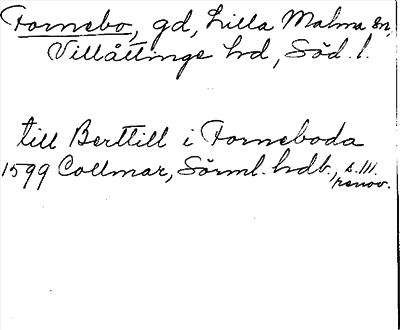 Fornebo, gd, Lilla Malma sn,
Villåttinge hd, Söd. l.
till Berttill i Forneboda
1599 Collmar, Sörml. hdb., s. 111.
renov.